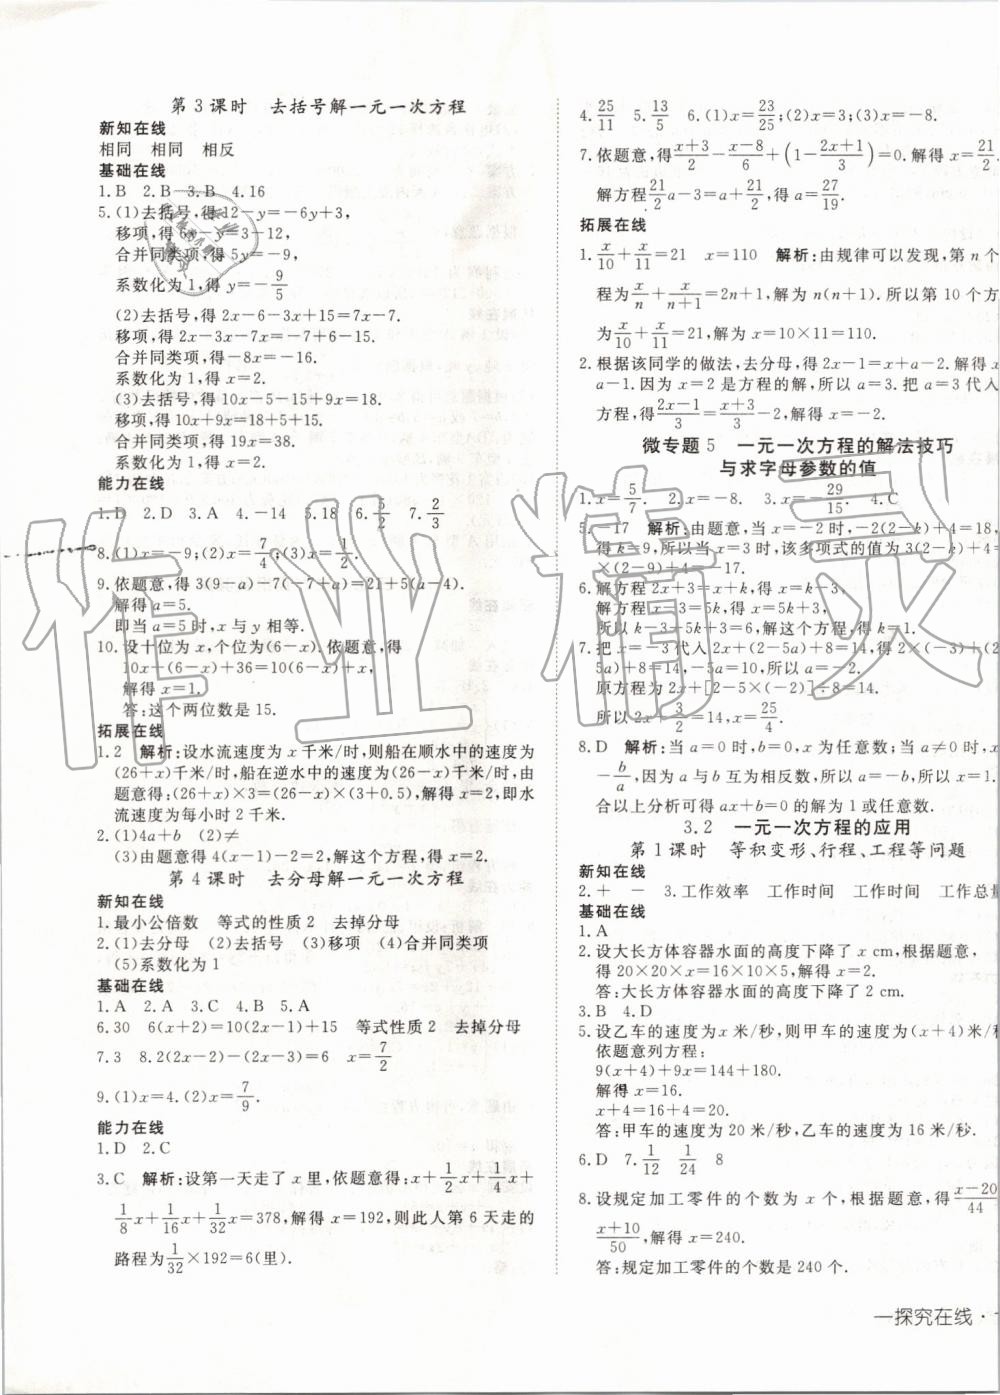 第 3 课时　去括号解一元一次方程
新知在线
相同　相同　相反
基础在线
1. B　2. B　3. B　4. 16
5. (1)去括号,得 12－y=－6y+3,
移项,得 6y－y=3－12,
合并同类项,得 5y=－9,
系数化为 1,得 y=－9/5
(2)去括号,得 2x－6－3x+15=7x－7.
移项,得 2x－3x－7x=－7+6－15.
合并同类项,得－8x=－16.
系数化为 1,得 x=2.
(3)去括号,得 10x－5－15+9x=18.
移项,得 10x+9x=18+5+15.
合并同类项,得 19x=38.
系数化为 1,得 x=2.
能力在线
1. D　2. D　3. A　4. －14　5. 18　6. 5/2　7. 2/3
8. (1)x=－9;(2)x=7/4;(3)x=1/2.
9. 依题意,得 3(9－a)－7(－7+a)=21+5(a－4).
解得 a=5.
即当 a=5 时,x 与 y 相等.
10. 设十位为 x,个位为(6－x). 依题意,得
10x+(6－x)+36=10(6－x)+x,
解得 x=1.
答:这个两位数是 15.
拓展在线
1. 2　解析:设水流速度为 x 千米/时,则船在顺水中的速度为
(26+x)千米/时,船在逆水中的速度为(26－x)千米/时,由
题意得:(26+x)×3=(26－x)×(3+0.5),解得 x=2,即水
流速度为每小时 2 千米.
2. (1)4a+b　(2)≠
(3)由题意得 4(x－1)－2=2,解这个方程,得 x=2.
第 4 课时　去分母解一元一次方程
新知在线
1. 最小公倍数　等式的性质 2　去掉分母
2. (1)去分母　(2)去括号　(3)移项　(4)合并同类项
(5)系数化为 1
基础在线
1. A　2. A　3. C　4. B　5. A
6. 30　6(x+2)=10(2x－1)+15　等式性质 2　去掉分母
7. 3　8. 2(2x－2)－(2x－3)=6　x=7/2
9. (1)x=4. (2)x=7/9.
能力在线
1. D　2. C
3. C　解析:设第一天走了 x 里,依题意,得:x+1/2x+1/4x+
1/8x+1/16x+1/32x=378,解得 x=192,则此人第 6 天走的
路程为1/32×192=6(里).
4. 25/11　5. 13/5　6. (1)x=23/25;(2)x=3;(3)x=－8.
7. 依题意,得(x+3)/2－(x－8)/6+(1－(2x+1)/3)=0. 解得 x=21/2
解方程21/2a－3=a+21/2,得 a=27/19.
拓展在线
1. x/10+x/11=21　x=110　解析:由规律可以发现,第 n 个
程为x/n+x/(n+1)=2n+1,解为 n(n+1). 所以第 10 个方
为x/10+x/11=21,解为 x=10×11=110.
2. 根据该同学的做法,去分母,得 2x－1=x+a－2. 解得 x
a－1. 因为 x=2 是方程的解,所以 a=3. 把 a=3 代入
方程,得(2x－1)/3=(x+3)/3－2,解得 x=－2.
微专题 5　一元一次方程的解法技巧
与求字母参数的值
1. x=5/7.　2. x=－8.　3. x=－29/15.　4. C
5. －17　解析:由题意,当 x=－2 时,－2(2－k)+4=
得 k=9,所以当 x=3 时,该多项式的值为 3(2－k)+4=
×(2－9)+4=－17.
6. 解方程 2x+3=x+k,得 x=k－3.
解方程 x－3=5k,得 x=5k+3,
所以 k－3－5k+3=6,解这个方程,得 k=1.
7. 把 x=－3 代入 2x+(2－5a)+8=14,得 2×(－3)+(2
5a)+8=14,－5a=10,所以 a=－2.
原方程为 2x+[2－5×(－2)]÷8=14.
所以 2x+3/2=14,x=25/4.
8. D　解析:当 a=0 时,b=0,x 为任意数;当 a≠0 时,x
－b/a,因为 a 与 b 互为相反数,所以 a=－b,所以 x=1.
合以上分析可得 ax+b=0 的解为 1 或任意数.
3.2　一元一次方程的应用
第 1 课时　等积变形、行程、工程等问题
新知在线
2. +　－　3. 工作效率　工作时间　工作时间　工作总量
基础在线
1. A
2. 设大长方体容器水面的高度下降了 x cm,根据题意,
得 20×20×x=16×10×5,解得 x=2.
答:大长方体容器水面的高度下降了 2 cm.
3. B　4. D
5. 设乙车的速度为 x 米/秒,则甲车的速度为(x+4)米/秒
依题意列方程:
9(x+4)+9x=144+180.
解得 x=16.
x+4=16+4=20.
答:甲车的速度为 20 米/秒,乙车的速度为 16 米/秒.
6. D　7. 1/12　1/24　8
8. 设规定加工零件的个数为 x 个,根据题意,得(x－20)/44
(x+10)/50,解得 x=240.
答:规定加工零件的个数是 240 个.
一探究在线 ·
作业精灵